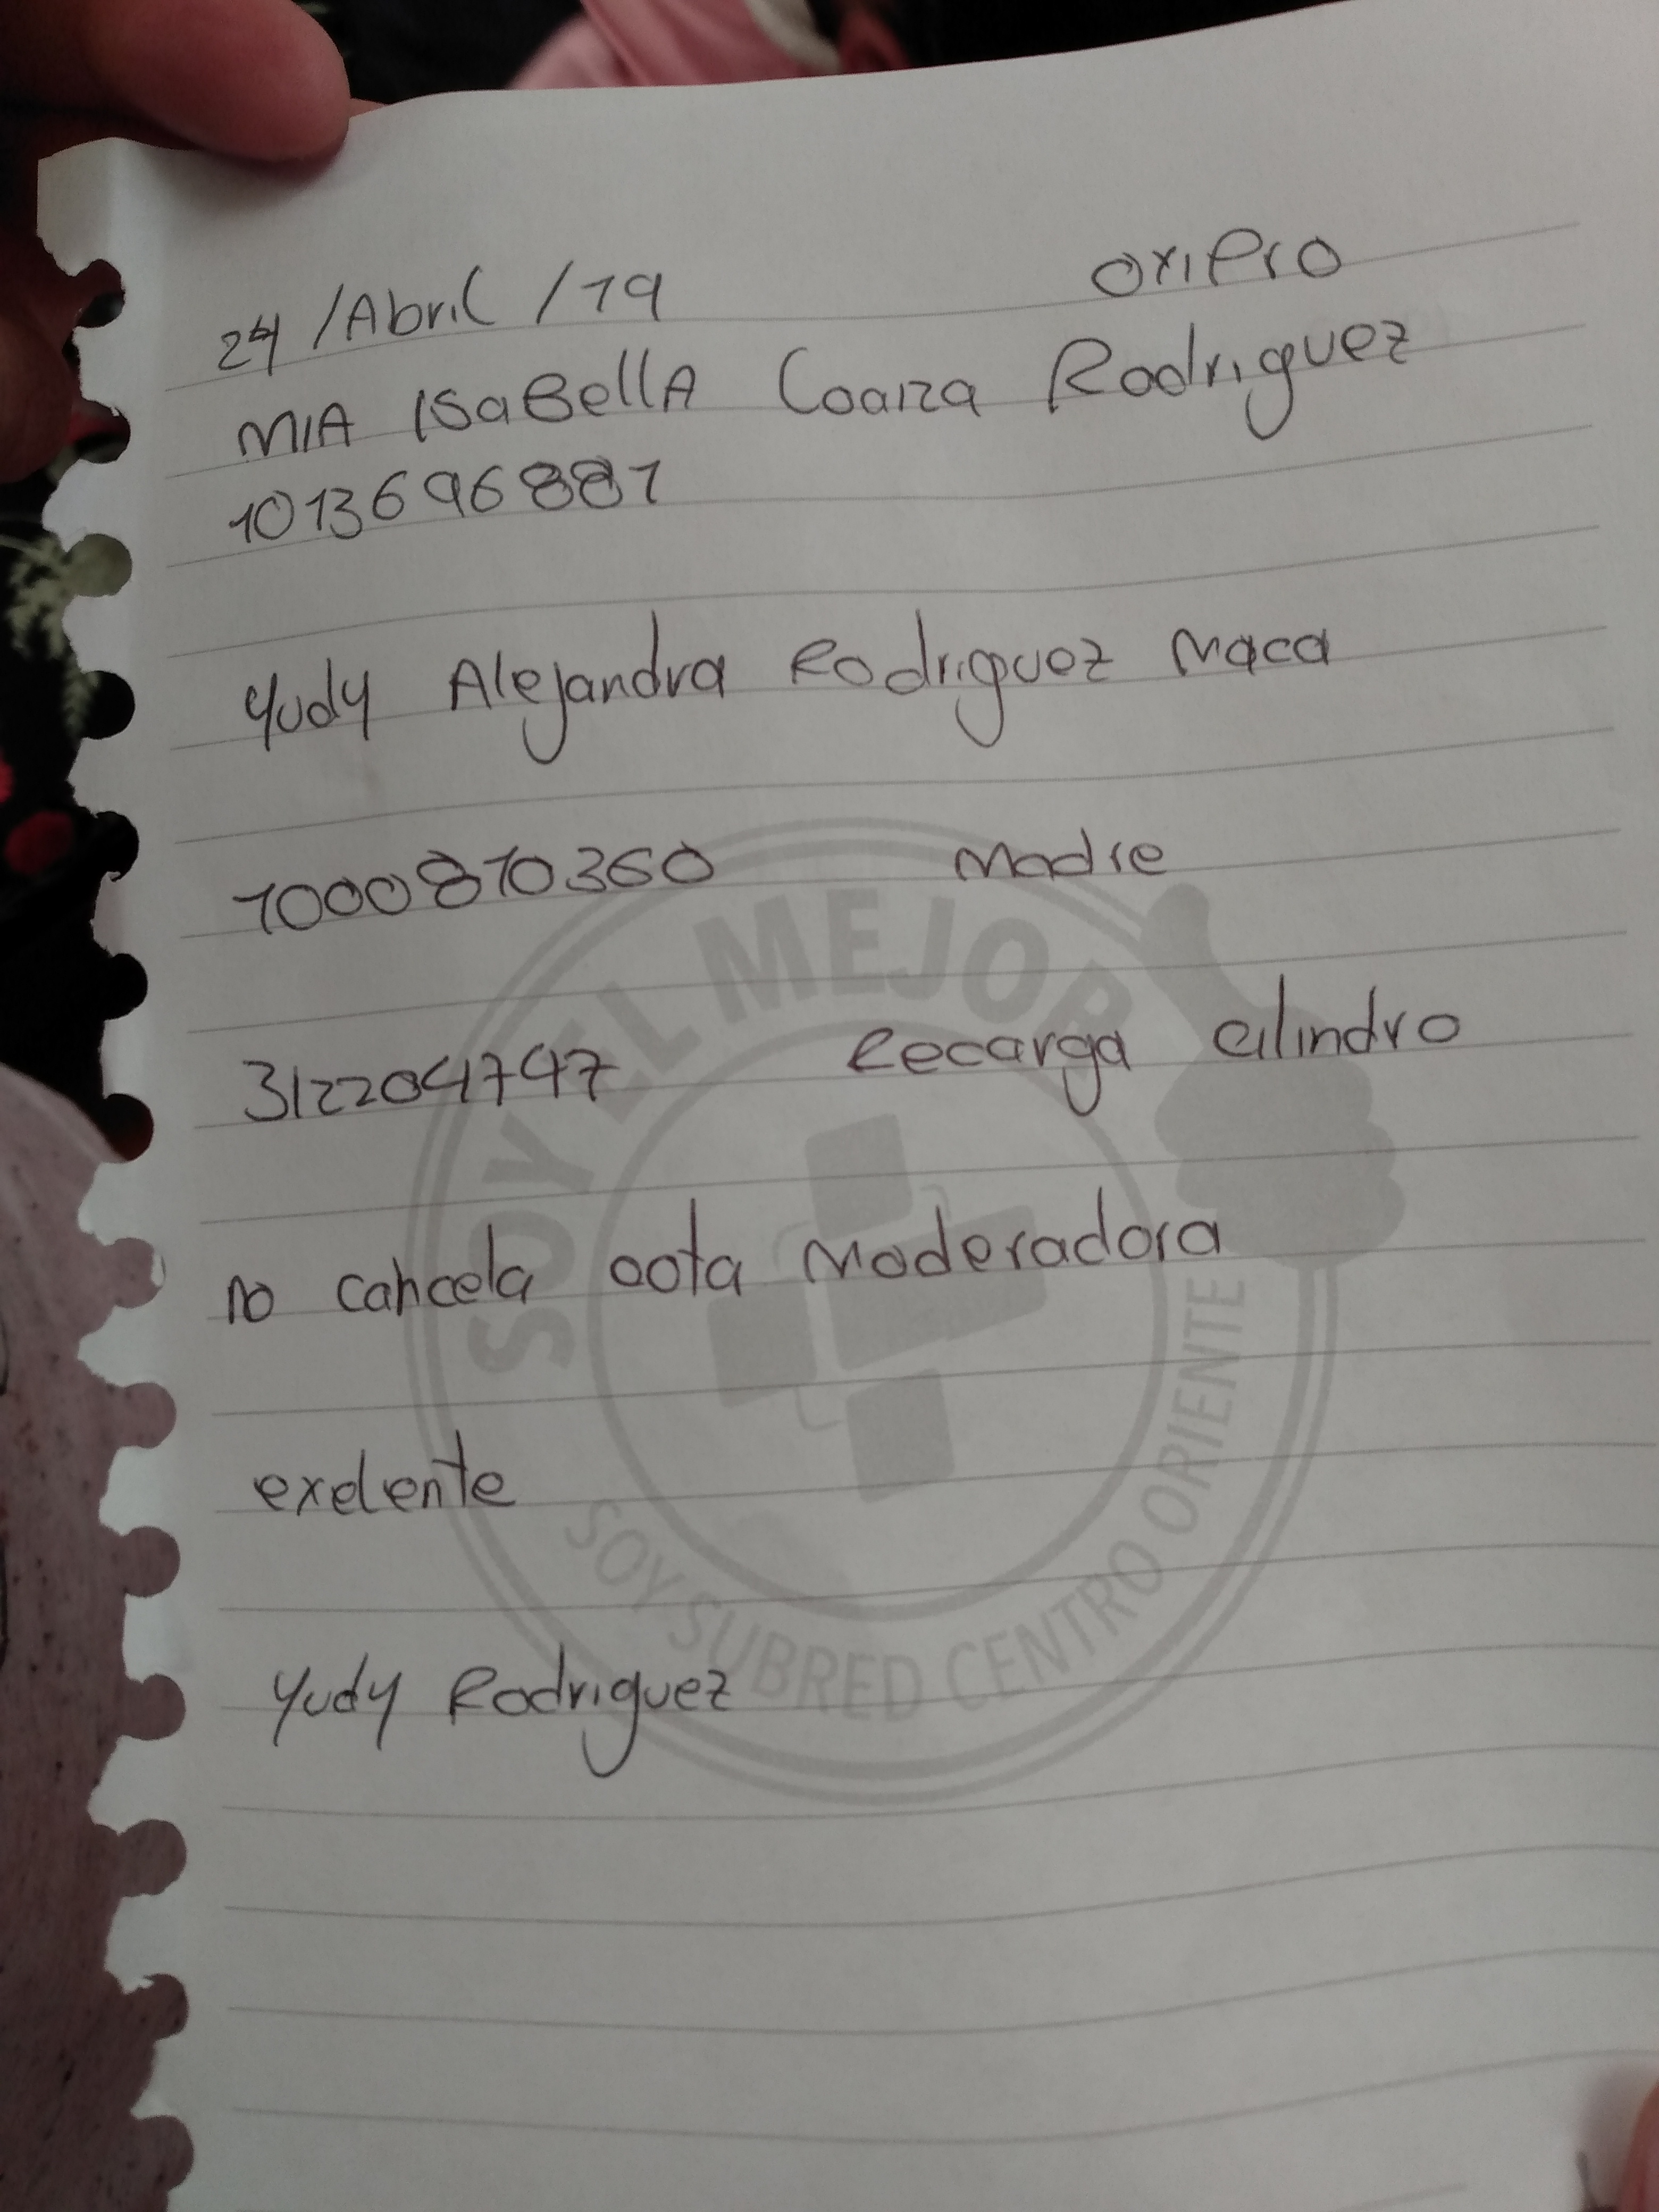 24/Abril/19 OxiPro
MIA ISaBellA Loaiza Rodriguez
1013696881
Yudy Alejandra Rodriguez Maca
1000810360 Madre
3122047747 Recarga cilindro
no cancela cota Moderadora
exelente
Yudy Rodriguez
SOY EL MEJOR
SOY SUBRED CENTRO ORIENTE